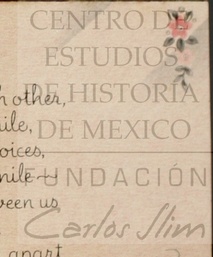 CENTRO DE
ESTUDIOS
DE HISTORIA
h other,
ile,
DE MEXICO
oices,
mile —
FUNDACIÓN
ween us
Carlos Slim
apart